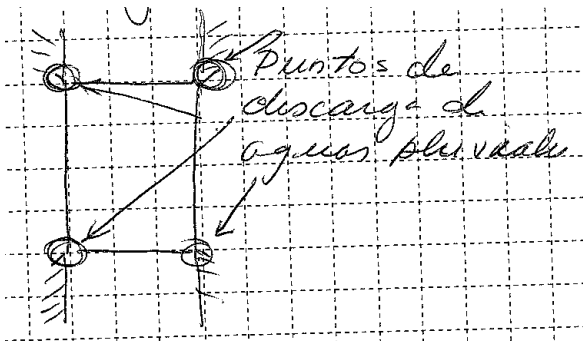 Puntos de
descarga de
aguas pluviales